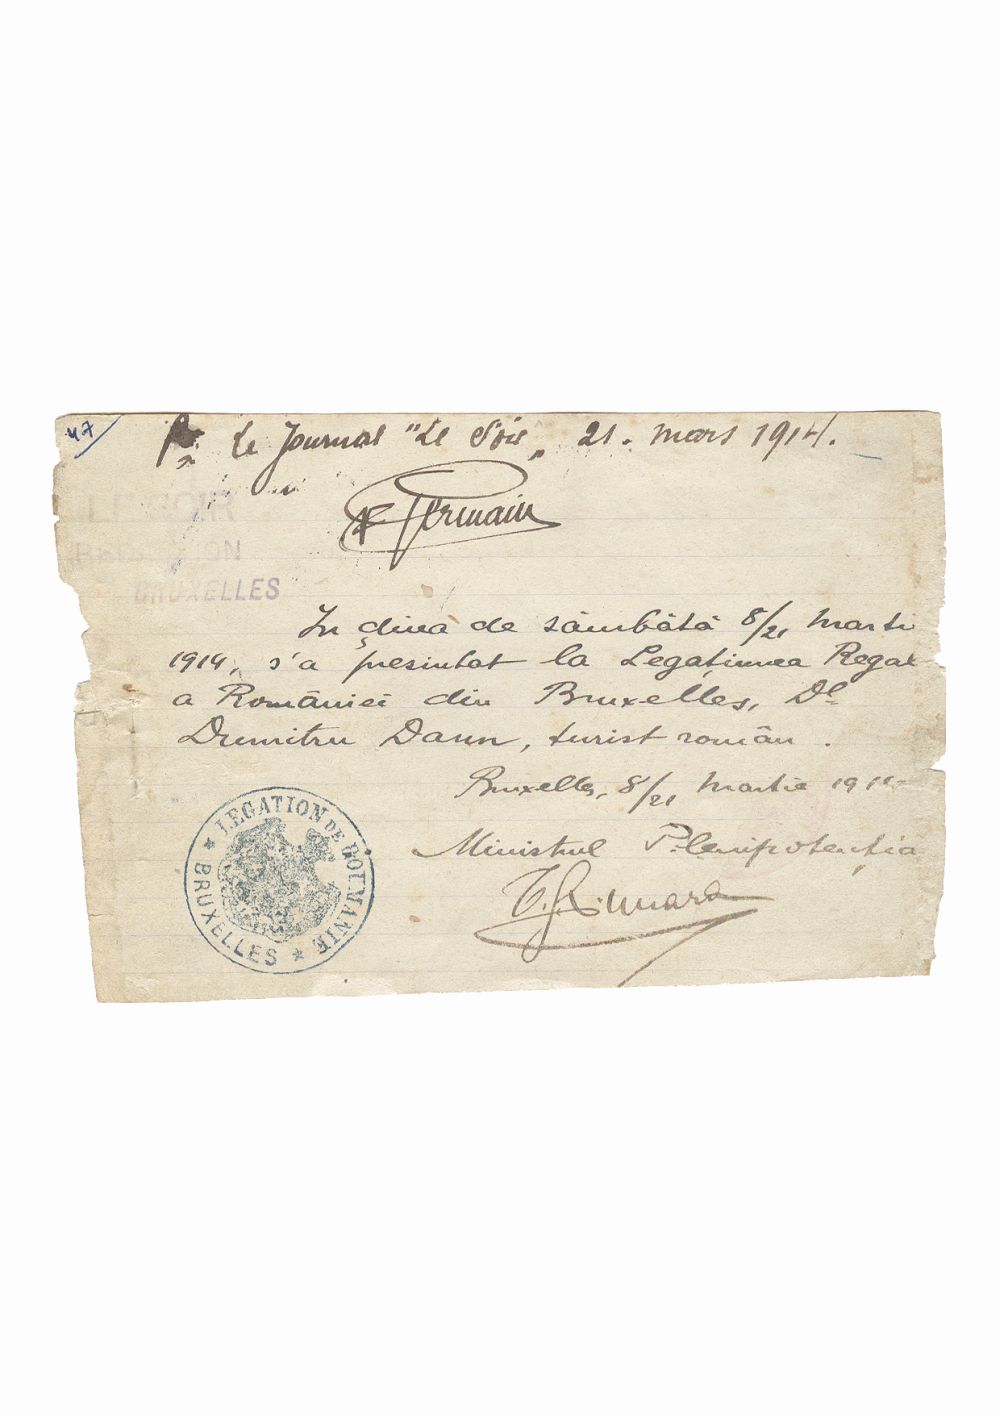 47
Pr Le Journal "Le Soir„ 21. mars 1914.
Germain
LE SOIR
REDACTION
BRUXELLES
In ḑiua de sâmbătă 8/21 Marti
1914, s'a presintat la Legaţiunea Regal
a României din Bruxelles, Dl
Dumitru Dann, turist român.
Bruxelles, 8/21 Martie 191
Ministrul Plenipotenţia
LEGATION DE ROUMANIE
* BRUXELLES *